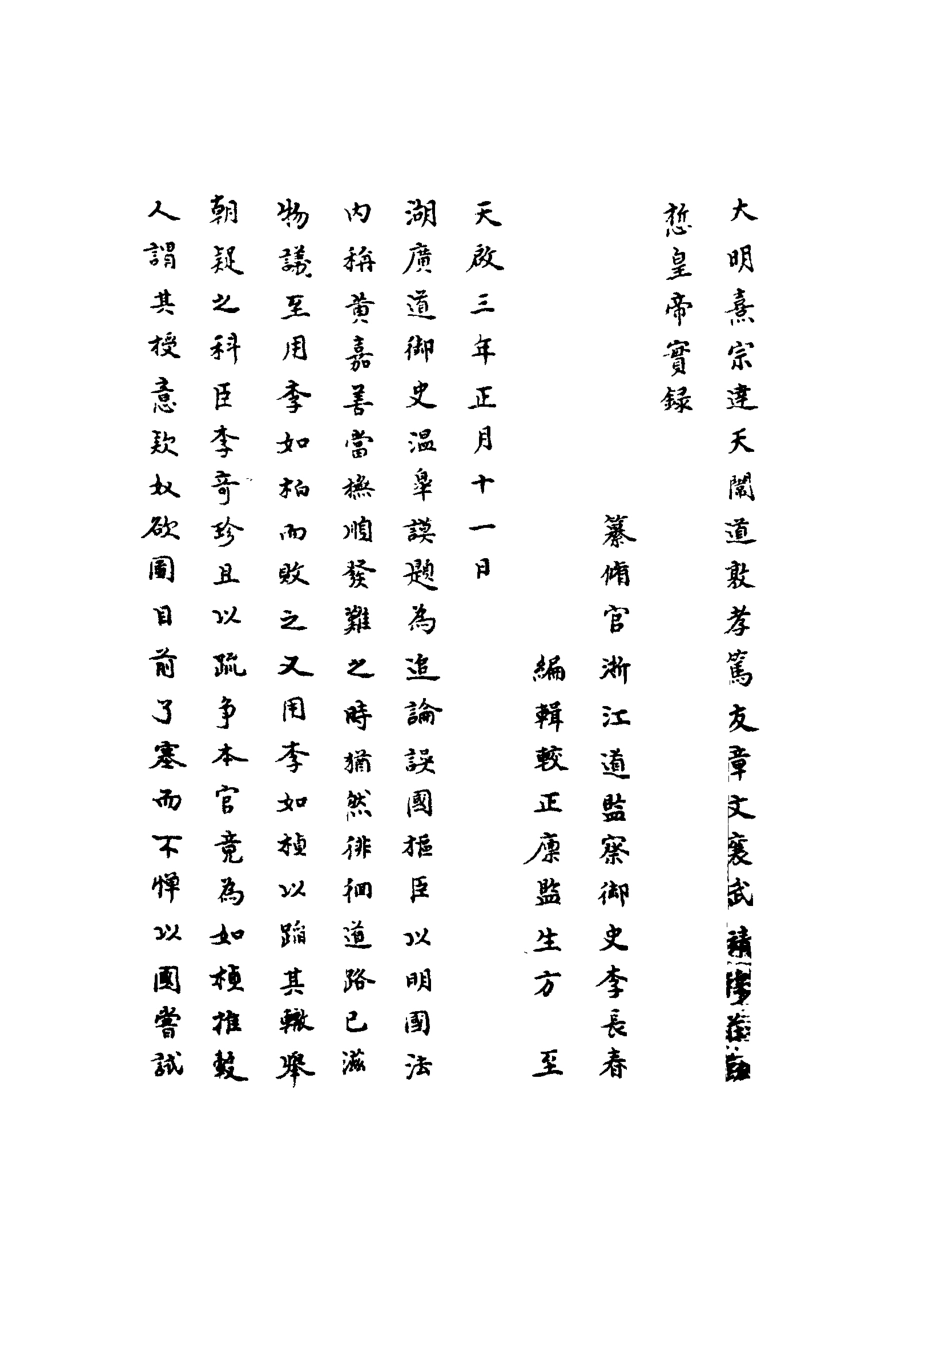 大明熹宗達天闡道敦孝篤友章文襄武靖穆莊勤
悊皇帝實錄
纂脩官浙江道監察御史李長春
編輯較正廩監生方　至
天啟三年正月十一日
湖廣道御史溫皐謨題為追論誤國樞臣以明國法
內稱黃嘉善當撫順發難之時猶然徘徊道路已滋
物議至用李如栢而敗之又用李如楨以蹈其轍舉
朝疑之科臣李奇珍且以疏爭本官竟為如楨推轂
人謂其授意欵奴欲圖目前了塞而不憚以國嘗試